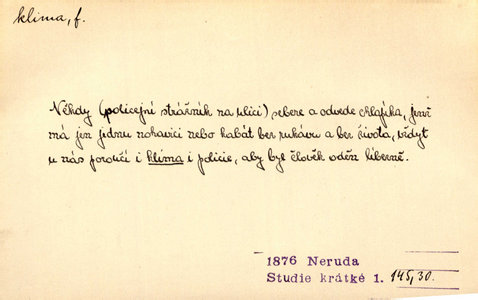 klima, f.
Někdy (policejní strážník na ulici) sebere a odvede chlapíka, jenž
má jen jednu nohavici nebo kabát bez rukávu a bez života, vždyť
u nás poroučí i klima i policie, aby byl člověk oděn líbezně.
1876 Neruda
Studie krátké 1. 145,30.